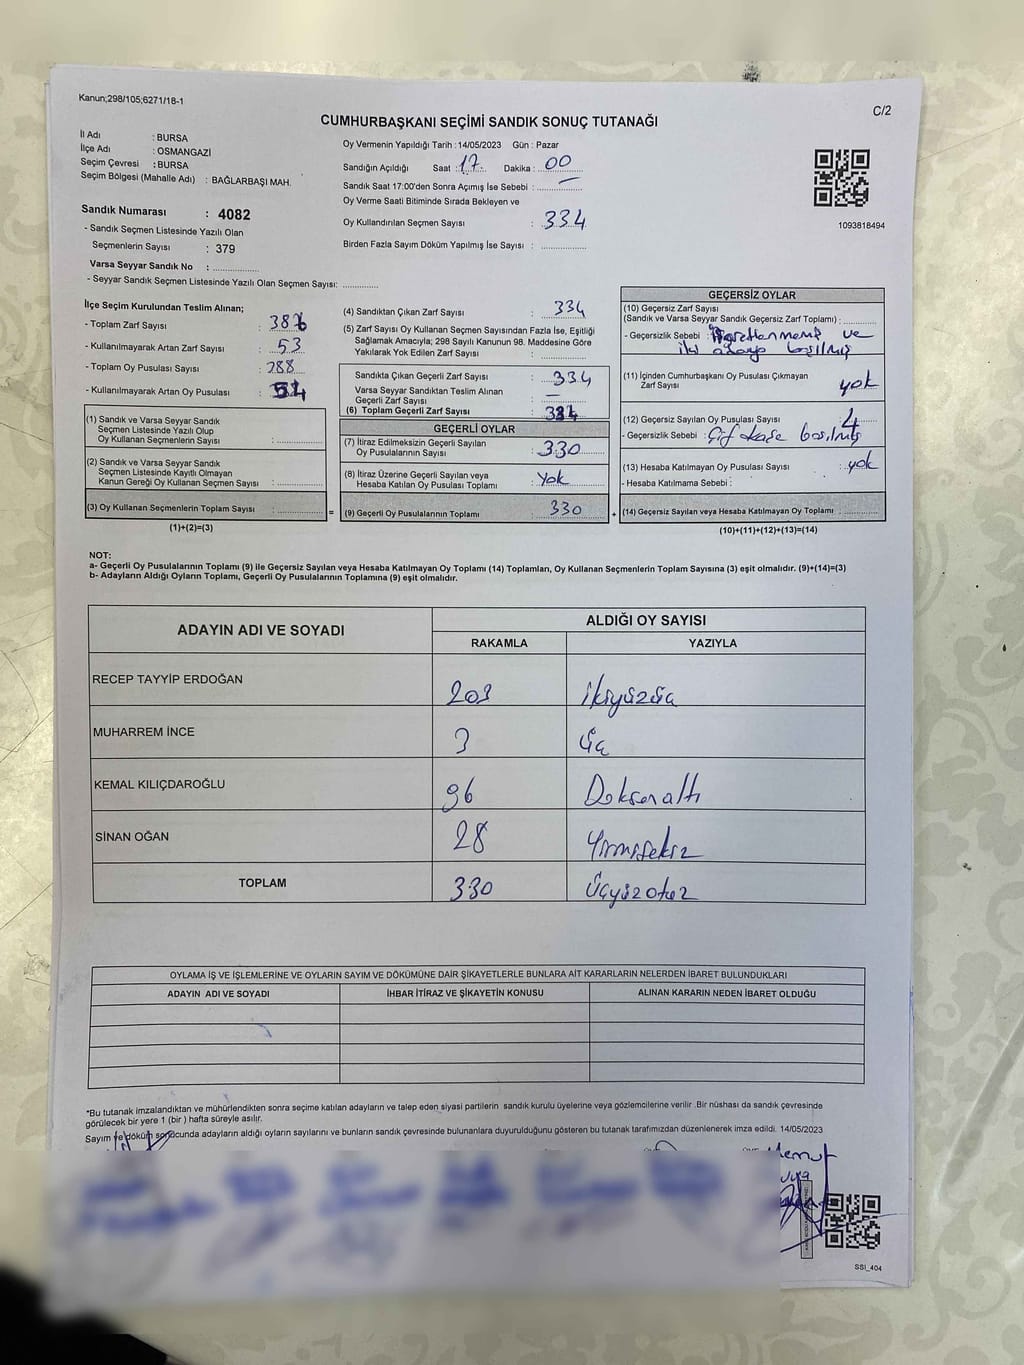 Kanun;298/105;6271/18-1
C/2
CUMHURBAŞKANI SEÇİMİ SANDIK SONUÇ TUTANAĞI
İl Adı : BURSA
İlçe Adı : OSMANGAZİ
Seçim Çevresi : BURSA
Seçim Bölgesi (Mahalle Adı) : BAĞLARBAŞI MAH.
Sandık Numarası : 4082
- Sandık Seçmen Listesinde Yazılı Olan
Seçmenlerin Sayısı : 379
Varsa Seyyar Sandık No : ..............
- Seyyar Sandık Seçmen Listesinde Yazılı Olan Seçmen Sayısı: ............
Oy Vermenin Yapıldığı Tarih : 14/05/2023 Gün : Pazar
Sandığın Açıldığı Saat : 17 Dakika : 00
Sandık Saat 17:00'den Sonra Açımış İse Sebebi : —
Oy Verme Saati Bitiminde Sırada Bekleyen ve
Oy Kullandırılan Seçmen Sayısı : 334
Birden Fazla Sayım Döküm Yapılmış İse Sayısı : ..............
1093818494
İlçe Seçim Kurulundan Teslim Alınan;
- Toplam Zarf Sayısı :
- Kullanılmayarak Artan Zarf Sayısı : 53
- Toplam Oy Pusulası Sayısı : 288
- Kullanılmayarak Artan Oy Pusulası :
(1) Sandık ve Varsa Seyyar Sandık
Seçmen Listesinde Yazılı Olup
Oy Kullanan Seçmenlerin Sayısı : ..............
(2) Sandık ve Varsa Seyyar Sandık
Seçmen Listesinde Kayıtlı Olmayan
Kanun Gereği Oy Kullanan Seçmen Sayısı : ..............
(3) Oy Kullanan Seçmenlerin Toplam Sayısı : ..............
(1)+(2)=(3)
=
(4) Sandıktan Çıkan Zarf Sayısı : 334
(5) Zarf Sayısı Oy Kullanan Seçmen Sayısından Fazla İse, Eşitliği
Sağlamak Amacıyla; 298 Sayılı Kanunun 98. Maddesine Göre
Yakılarak Yok Edilen Zarf Sayısı : ..............
Sandıkta Çıkan Geçerli Zarf Sayısı : 334
Varsa Seyyar Sandıktan Teslim Alınan
Geçerli Zarf Sayısı : —
(6) Toplam Geçerli Zarf Sayısı :
GEÇERLİ OYLAR
(7) İtiraz Edilmeksizin Geçerli Sayılan
Oy Pusulalarının Sayısı : 330
(8) İtiraz Üzerine Geçerli Sayılan veya
Hesaba Katılan Oy Pusulası Toplamı : Yok
(9) Geçerli Oy Pusulalarının Toplamı : 330
+
GEÇERSİZ OYLAR
(10) Geçersiz Zarf Sayısı
(Sandık ve Varsa Seyyar Sandık Geçersiz Zarf Toplamı) : ..........
- Geçersizlik Sebebi : ve
iki basılmış
(11) İçinden Cumhurbaşkanı Oy Pusulası Çıkmayan
Zarf Sayısı : yok
(12) Geçersiz Sayılan Oy Pusulası Sayısı : 4
- Geçersizlik Sebebi : Çif kaşe basılmış
(13) Hesaba Katılmayan Oy Pusulası Sayısı : yok
- Hesaba Katılmama Sebebi :
(14) Geçersiz Sayılan veya Hesaba Katılmayan Oy Toplamı : ..........
(10)+(11)+(12)+(13)=(14)
NOT:
a- Geçerli Oy Pusulalarının Toplamı (9) ile Geçersiz Sayılan veya Hesaba Katılmayan Oy Toplamı (14) Toplamları, Oy Kullanan Seçmenlerin Toplam Sayısına (3) eşit olmalıdır. (9)+(14)=(3)
b- Adayların Aldığı Oyların Toplamı, Geçerli Oy Pusulalarının Toplamına (9) eşit olmalıdır.
ADAYIN ADI VE SOYADI
ALDIĞI OY SAYISI
RAKAMLA YAZIYLA
RECEP TAYYİP ERDOĞAN 203 ikiyüzüç
MUHARREM İNCE 3 Üç
KEMAL KILIÇDAROĞLU 96 Doksanaltı
SİNAN OĞAN 28 Yirmisekiz
TOPLAM 330 Üçyüzotuz
OYLAMA İŞ VE İŞLEMLERİNE VE OYLARIN SAYIM VE DÖKÜMÜNE DAİR ŞİKAYETLERLE BUNLARA AİT KARARLARIN NELERDEN İBARET BULUNDUKLARI
ADAYIN ADI VE SOYADI İHBAR İTİRAZ VE ŞİKAYETİN KONUSU ALINAN KARARIN NEDEN İBARET OLDUĞU
*Bu tutanak imzalandıktan ve mühürlendikten sonra seçime katılan adayların ve talep eden siyasi partilerin sandık kurulu üyelerine veya gözlemcilerine verilir .Bir nüshası da sandık çevresinde
görülecek bir yere 1 (bir ) hafta süreyle asılır.
Sayım ve döküm sonucunda adayların aldığı oyların sayılarını ve bunların sandık çevresinde bulunanlara duyurulduğunu gösteren bu tutanak tarafımızdan düzenlenerek imza edildi. 14/05/2023
SSI_404